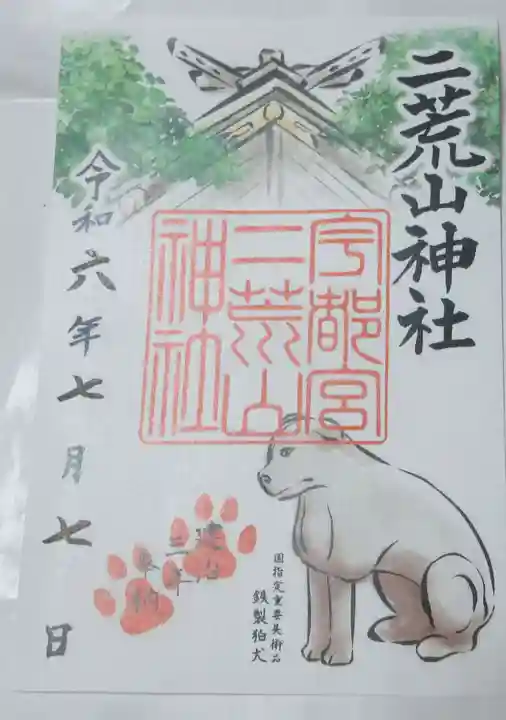 二荒山神社
宇都宮
二荒山
神社
国指定重要美術品
鉄製狛犬
建治
三年
奉納
令和六年七月七日